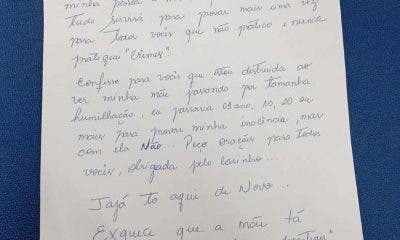 minha pessoa
tudo servirá para provar mais uma vez
para todos vocês que não pratico, nunca
pratiquei "crimes".
Confesso para vocês que estou distruida ao
ver minha mãe passando por tamanha
humilhação, eu passaria 01 ano, 10, 20 ou
mais para provar minha inolência, mas
com ela Não... Peço orações para todos
vocês, obrigada pelo carinho...
Jajá to aqui de Novo...
Exquece que a mãe tá